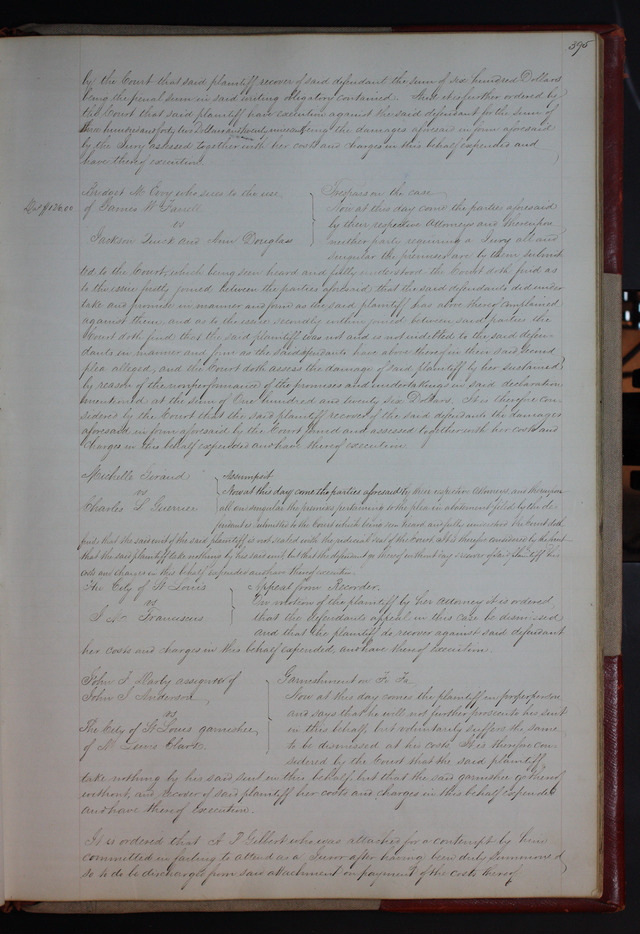 395
by the Court that said plaintiff recover of said defendant the sum of six hundred Dollars
being the penal sum in said writing obligatory contained. And it is further ordered by
the Court that said plaintiff have execution against the said defendant for the sum of
three hundred and forty two Dollars and twenty nine cents being the damages aforesaid in form aforesaid
by the Jury assessed together with her costs and charges in this behalf expended and
have thereof execution.
Bridget Mc Evoy who sues to the use
of James W Farrell
vs
Jackson and Ann Douglas
Trespass on the case
Now at this day come the parties aforesaid
by their respective Attorneys and thereupon
neither party requiring a Jury all and
singular the premises are by them submit
ted to the Court, which being seen heard and fully understood the Court doth find as
to the issue firstly joined between the parties aforesaid, that the said defendants did under
take and promise in manner and form as the said plaintiff has above thereof complained
against them and as to the issue secondly within joined between said parties the
Court doth find that the said plaintiff was not and is not indebted to the said defen-
dants in manner and form as the said defendants have above thereof in their said second
plea alleged, and the Court doth assess the damage of said plaintiff by her sustained
by reason of the nonperformance of the promises and undertakings in said declaration
mentioned at the sum of One hundred and twenty six Dollars. It is therefore con-
sidered by the Court that the said plaintiff recover of the said defendants the damages
aforesaid in form aforesaid by the Court found and assessed together with her costs and
charges in this behalf expended and have thereof execution
Michelle Giraud
vs
Charles L Guernee
Assumpsit
Now at this day come the parties aforesaid by their respective Attorneys, and thereupon
all and singular the premises pertaining to the plea in abatement filed by the de-
fendant is submitted to the Court which being seen heard and fully understood the Court doth
find that the said writ of the said plaintiff is not sealed with the judicial seal of the Court. It is therefore considered by the Court
that the said plaintiff take nothing by his said writ but that the defendant go thereof without day & recover of said plaintiff his
costs and charges in this behalf expended and have thereof execution.
The City of St Louis
vs
J A Franciscus
Appeal from Recorder.
On motion of the plaintiff by her attorney it is ordered
that the defendants appeal in this case be dismissed
and that the plaintiff do recover against said defendant
her costs and charges in this behalf expended, and have thereof Execution.
John F Darby assignee of
John J Anderson,
vs
The City of St Louis garnishee,
of M Lewis Clark
Garnishment on Fi Fa
Now at this day comes the plaintiff in proper person
and says that he will not further prosecute his suit
in this behalf, but voluntarily suffers the same
to be dismissed at his costs. It is therefore con-
sidered by the Court that the said plaintiff
take nothing by his said suit in this behalf but that the said garnishee go thereof
without, and recover of said plaintiff her costs and charges in this behalf expended
and have thereof execution.
It is ordered that A P Gilbert who was attached for a contempt by him
committed in failing to attend as a Juror after having been duly summoned
so to do be discharged from said attachment on payment of the costs thereof